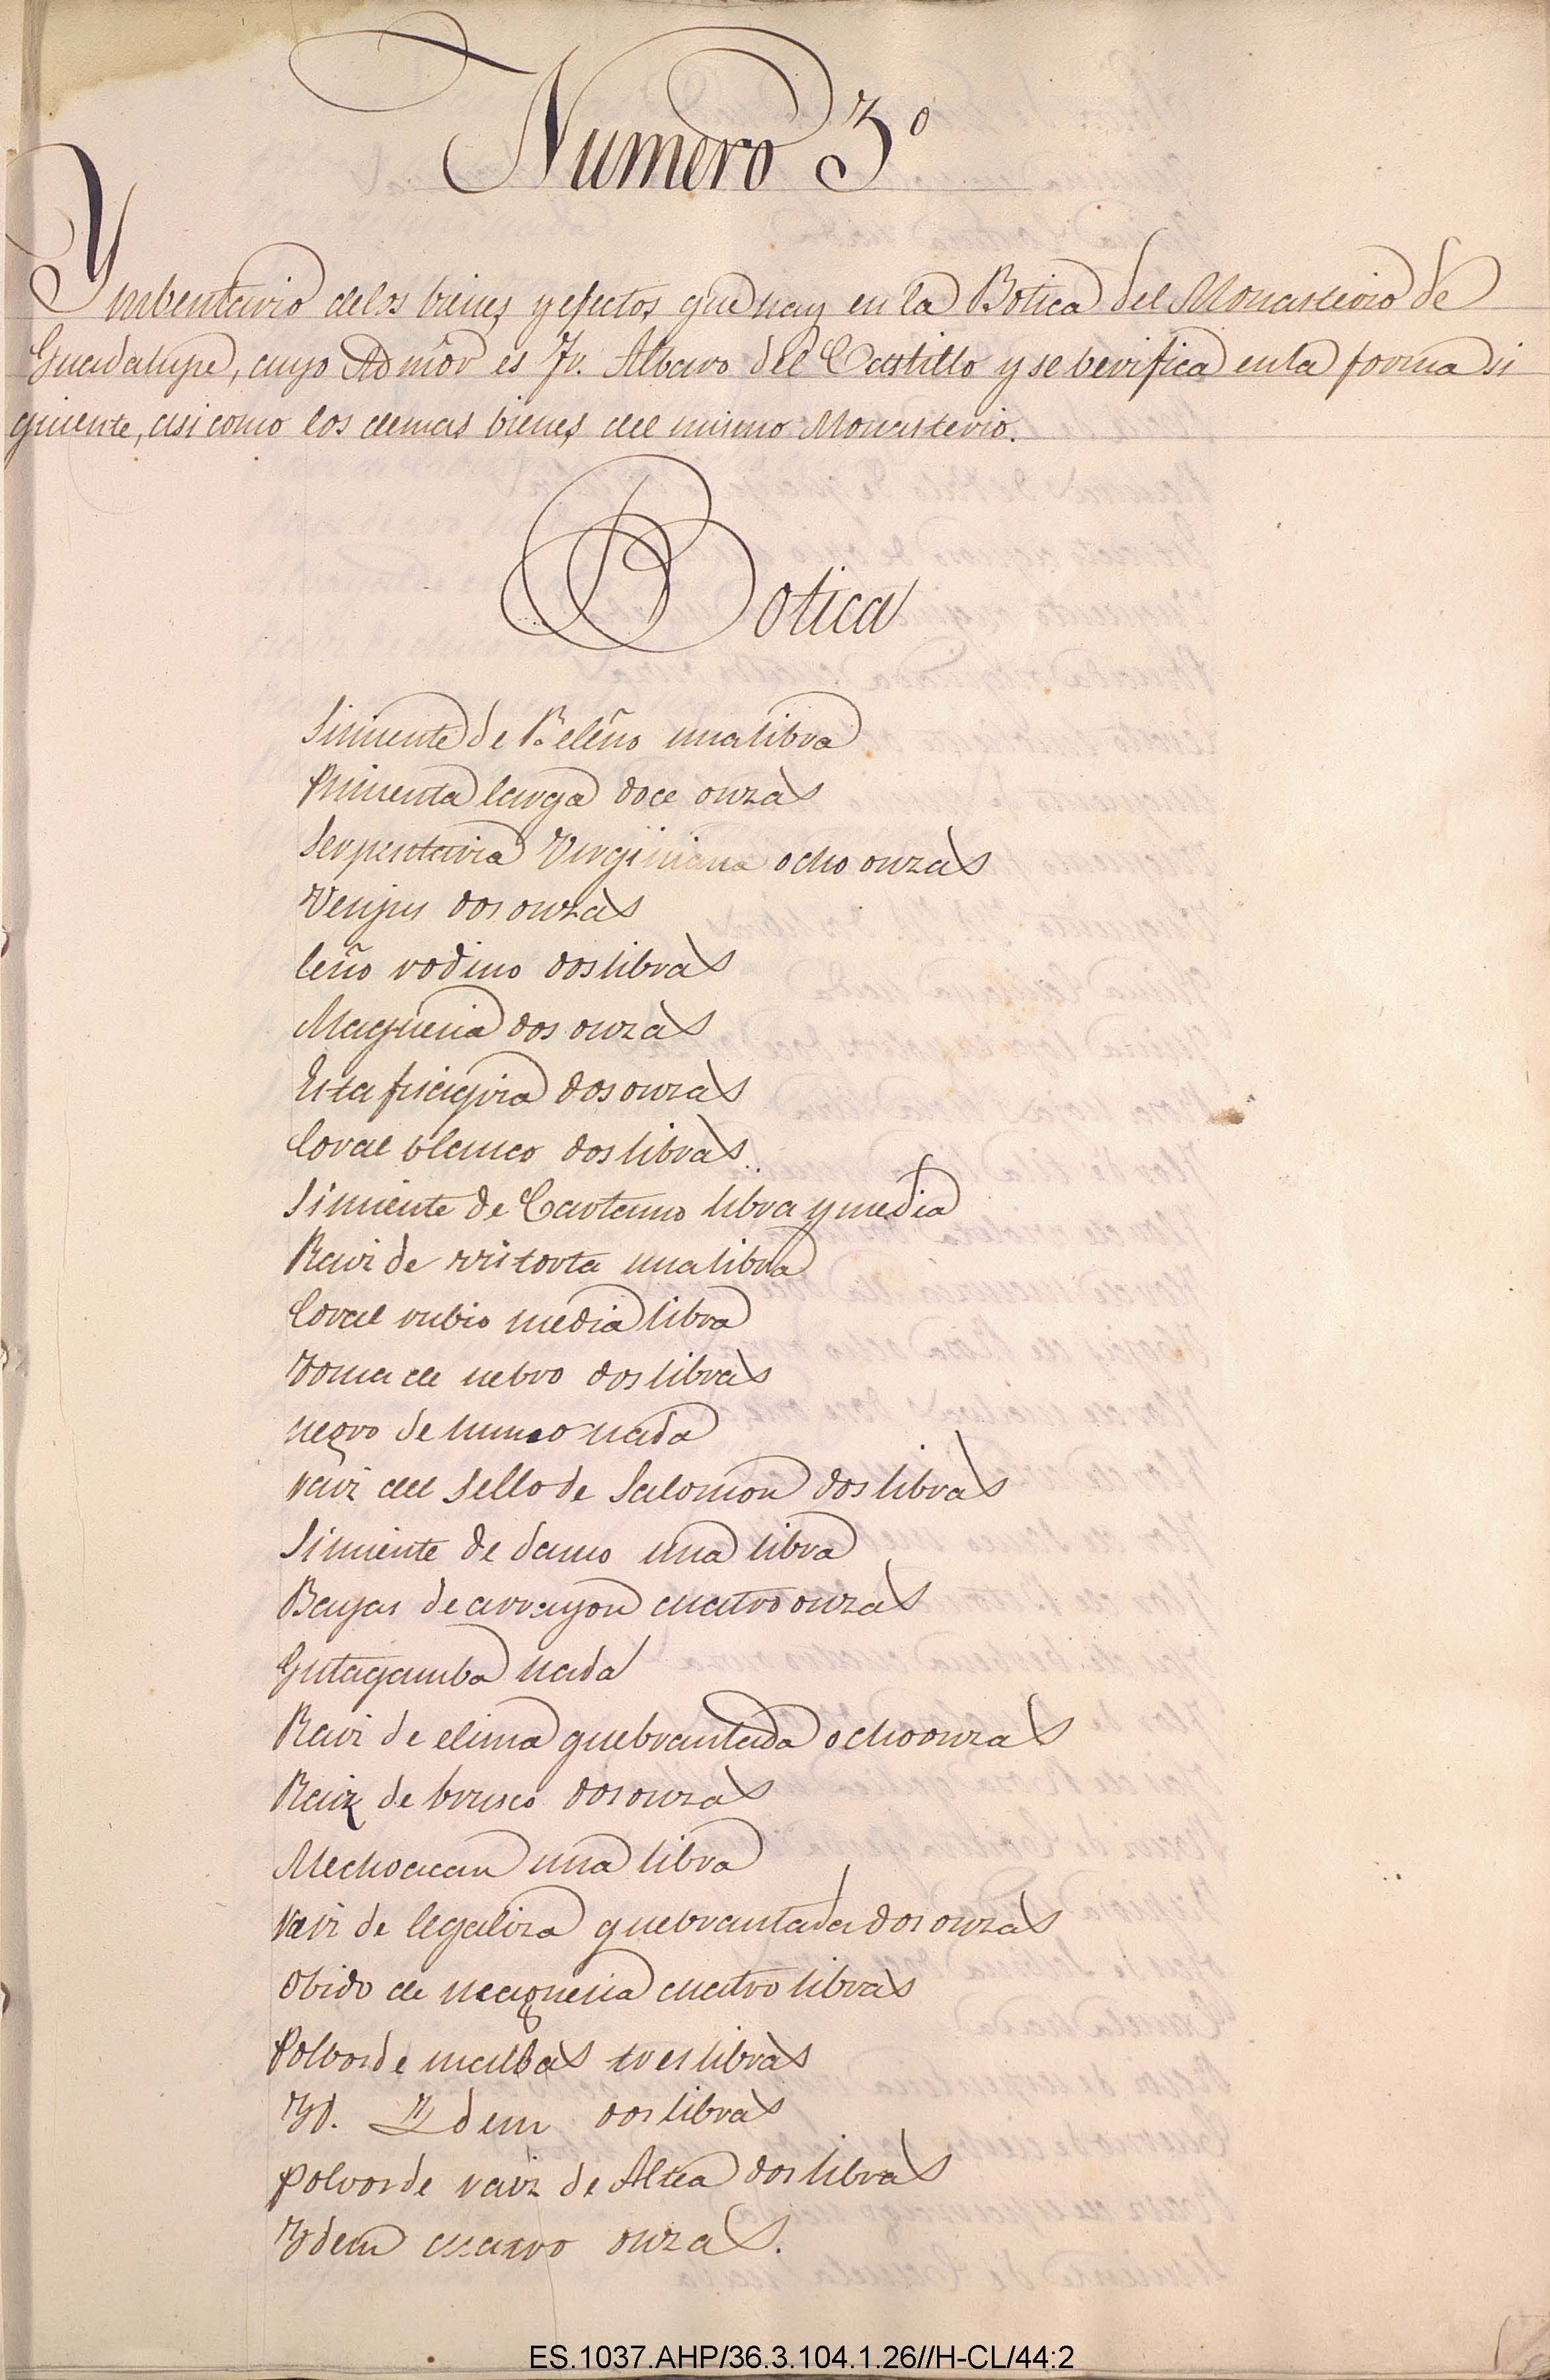 Numero 3º
Ymbentario delos bienes y efectos que hay en la Botica del Monasterio de
Guadalupe, cuyo Admor es Fr. Albaro del Castillo y se berifica en la forma si
guiente, asi como los demas bienes del mismo Monasterio.
Botica
Simiente de Beleño una libra
Pimienta larga doce onzas
Serpentaria Virginiana ocho onzas
dos onzas
leño rodino dos libras
Magnesia dos onzas
Estafisagria dos onzas
Coral blanco dos libras
Simiente de Cartamo libra y media
Raiz de vristorta una libra
Coral rubio media libra
Goma de nebro dos libras
negro de humo nada
raiz del sello de Salomon dos libras
Simiente de dauco una libra
Bayas de arrayon cuatro onzas
Gutagamba nada
Raiz de elima quebrantada ocho onzas
Raiz de brusco dos onzas
Mechoacan una libra
raiz de legaliza quebrantada dos onzas
Obido de magnesia cuatro libras
Polvos de malbas tres libras
Yd. Ydem dos libras
polvos de raiz de Altea dos libras
Ydem cuatro onzas.
ES.1037.AHP/36.3.104.1.26//H-CL/44:2